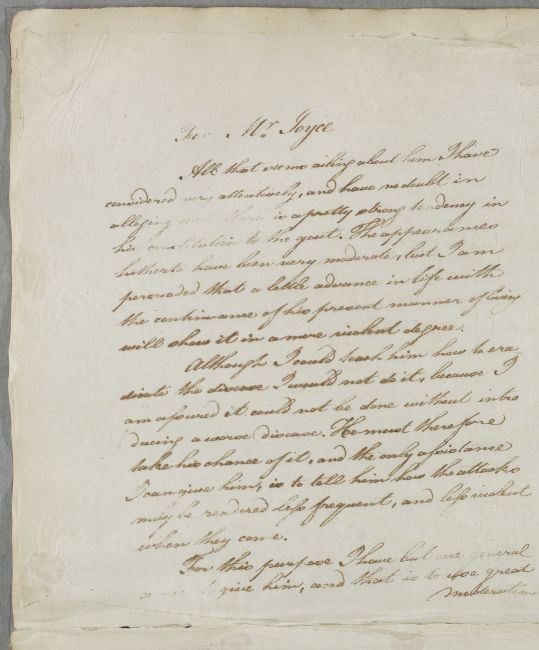 For Mr. Joyce
All that seems ailing about him I have
considered very attentively, and have no doubt in
alleging that there is a pretty strong tendency in
his constitution to the gout. The appearances
hitherto have been very moderate, but I am
persuaded that a little advance in life with
the continuance of his present manner of living
will show it in a more violent degree.
Although I could teach him how to era-
dicate the disease I would not do it, because I
am assured it could not be done without intro
ducing a worse disease. He must therefore
take his chance of it, and the only assistance
I can give him, is to tell him how the attacks
may be rendered less frequent, and less violent
when they come.
For this purpose I have but one general
to give him, and that is to use great
moderation